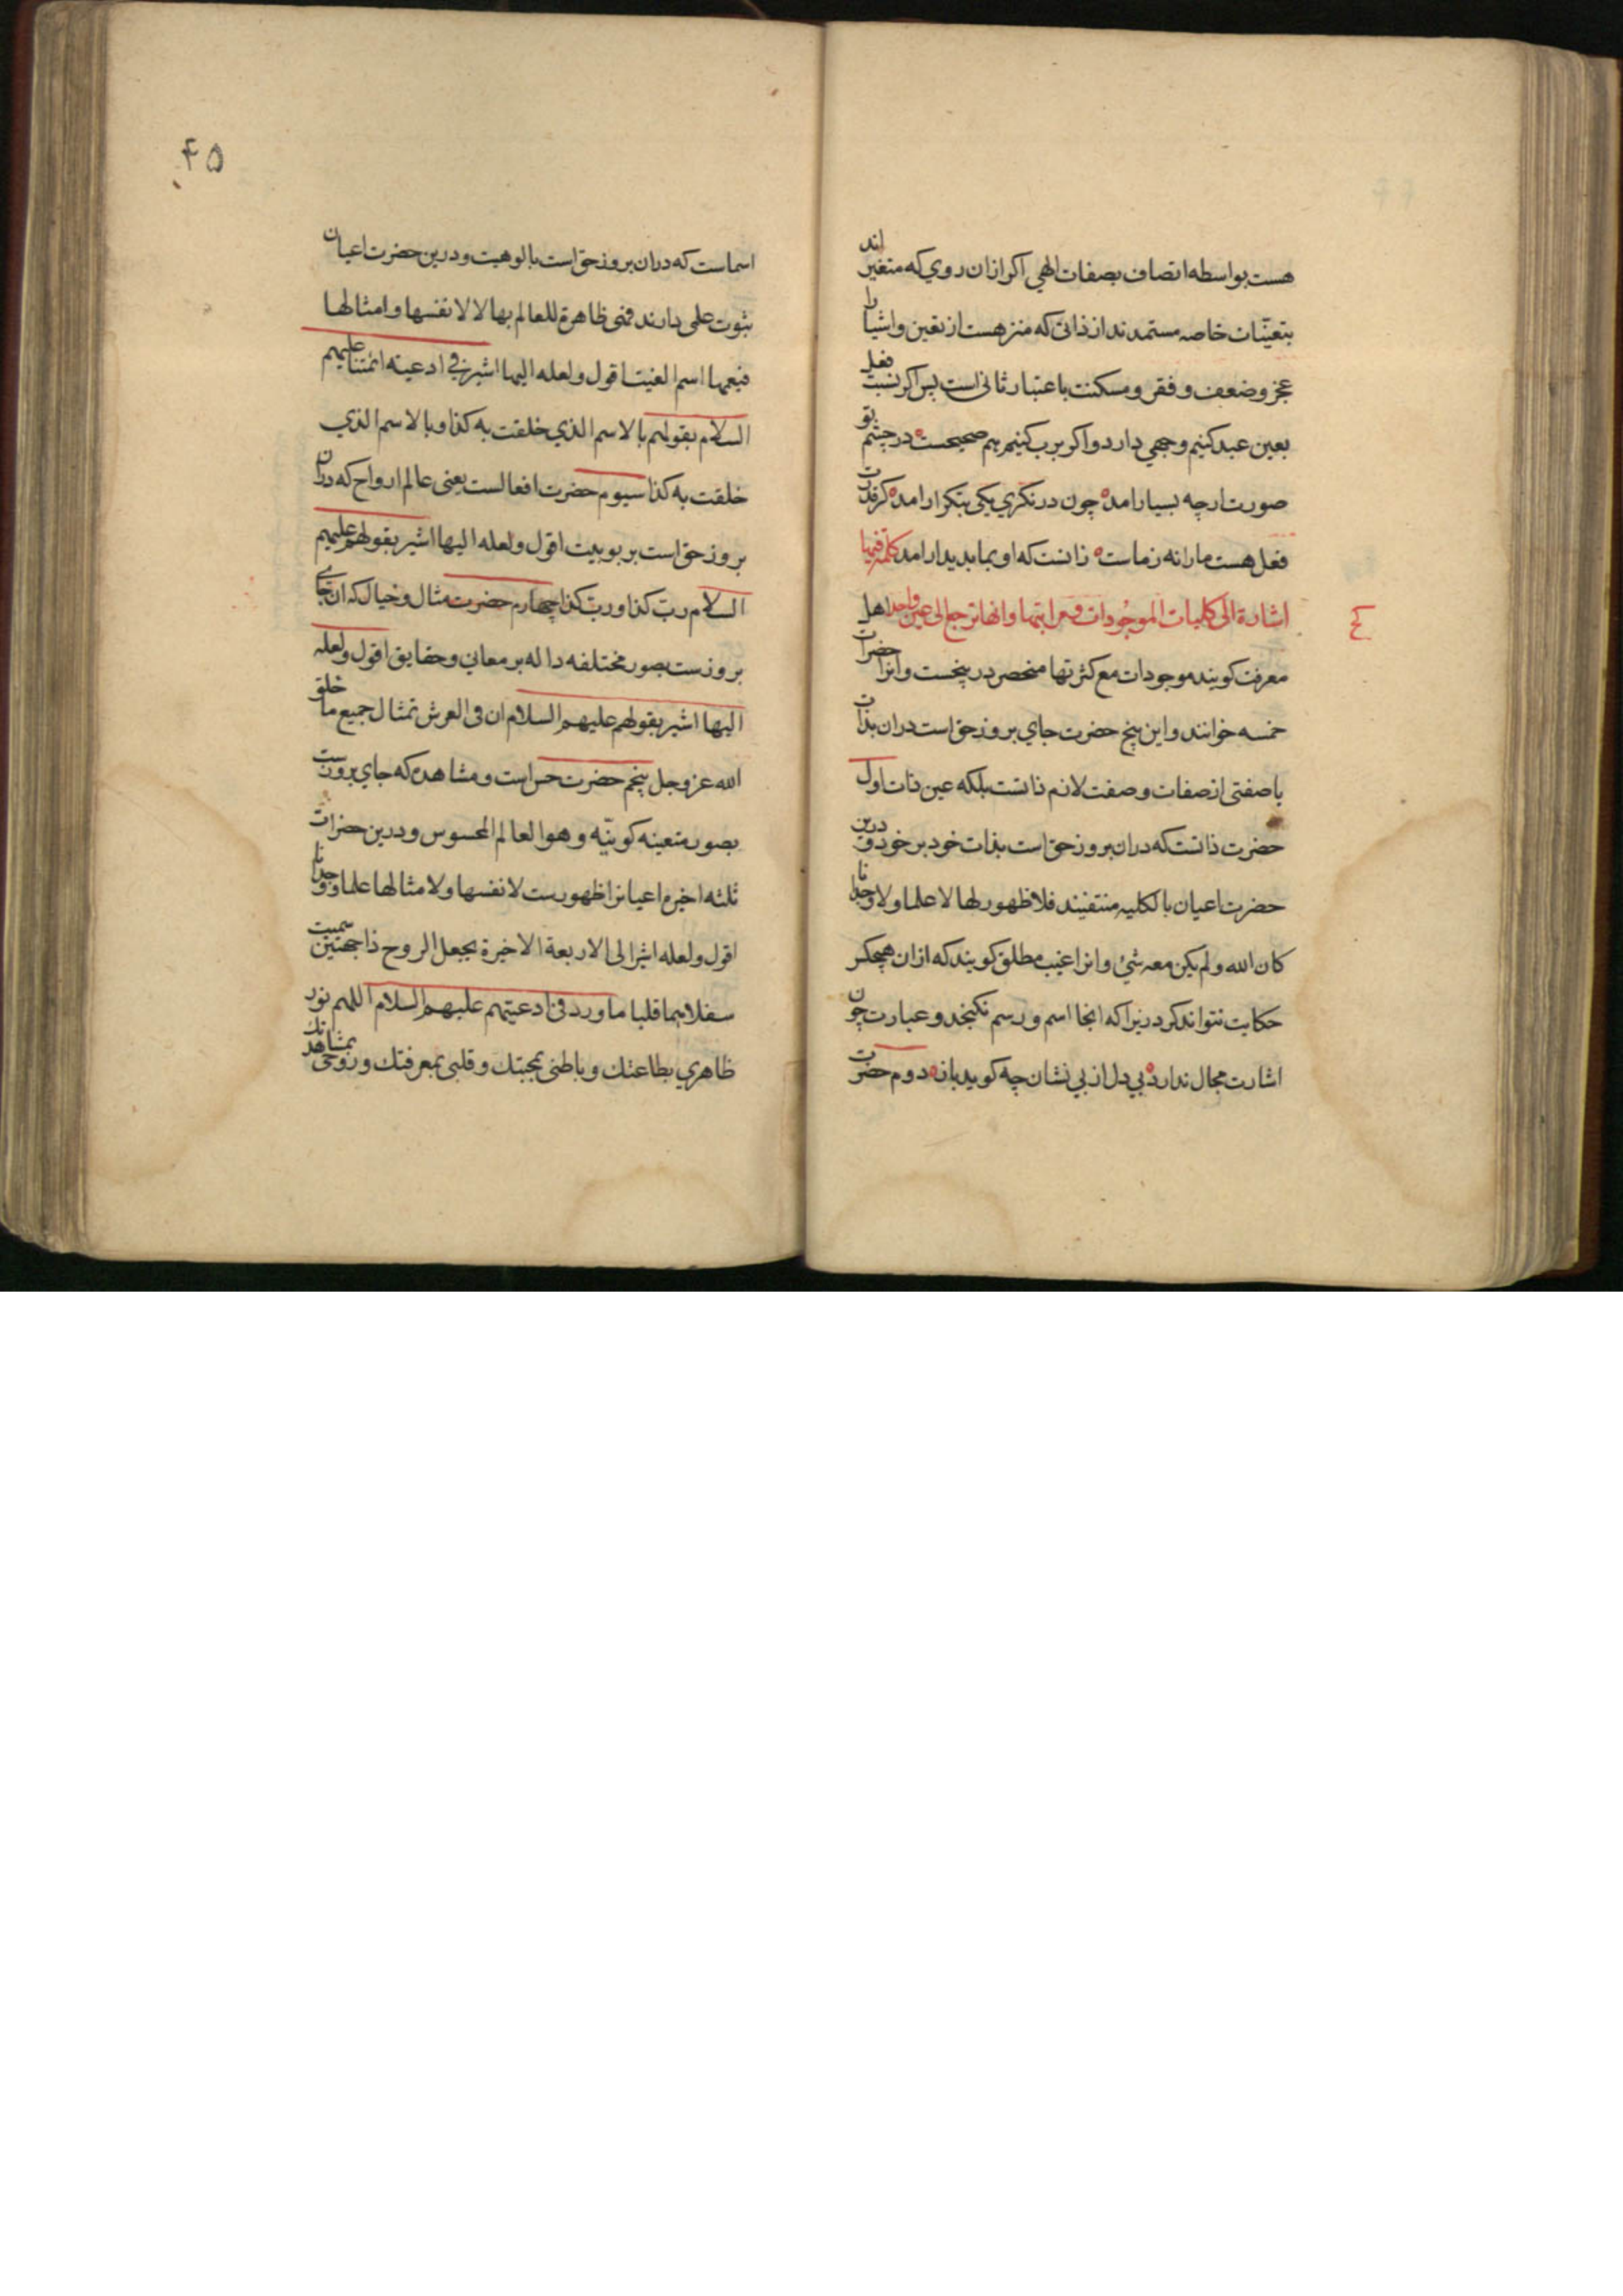 هست بواسطه اتصاف بصفات الهي اكر ازان روي كه متغير اند
بتعينات خاصه مستمدند از ذاتی كه منزهست از تعین و اشیا را
عجز و ضعف و فقر و مسكنت باعتبار ثانی است پس اكر نسبت فعل
بعین عبد كنیم وجهي دارد و اكر برب كنیم هم صحیحست در چشم تو
صورت ارچه بسیار امده چون در نكري یكی بتكرار امده كر قدرت
فعل هست مارا نه زماست زانست كه او بما بدیدار امد كلمة فیها
اشارة الی كلیات الموجودات و مراتبها و انها ترجع الی عین واحدة اهل
معرفت كویند موجودات مع كثرتها منحصر در پنجست و انرا حضرات
خمسه خوانند و این پنج حضرت جاي بروز حق است دران بذات
یا صفتی از صفات و صفت لازم ذاتست بلكه عین ذات اول
حضرت ذاتست كه دران بروز حق است بذات خود بر خود و درین
حضرت اعیان بالكلیه منتفیند فلا ظهور لها لا علما و لا وجدانا
كان الله و لم یكن معه شيء و انرا غیب مطلق كویند كه ازان هیچكس
حكایت نتواند كرد زیرا كه انجا اسم و رسم نكنجد و عبارت چون
اشارت مجال ندارد بي دل از بي نشان چه كوید باز دوم حضرت
۴۵
اسماست كه دران بروز حق است بالوهیت و درین حضرت اعیان
ثبوت علمی دارند فهی ظاهرة للعالم بها لا لانفسها و امثالها
فیعمها اسم الغیب اقول و لعله الیها اشیر في ادعیته ائمتنا علیهم
السلام بقولهم بالاسم الذي خلقت به كذا و بالاسم الذي
خلقت به كذا سیوم حضرت افعالست یعنی عالم ارواح كه دران
بروز حق است بربوبیت اقول و لعله الیها اشیر بقولهم علیهم
السلام رب كذا و رب كذا چهارم حضرت مثال و خیال كه ان جاي
بروزست بصور مختلفه داله بر معاني و حقایق اقول و لعله
الیها اشیر بقولهم علیهم السلام ان فی العرش تمثال جمیع ما خلق
الله عز و جل پنجم حضرت حس است و مشاهده كه جاي بروزست
بصور متعینه كونیه و هو العالم المحسوس و درین حضرات
ثلثه اخیره اعیانرا ظهورست لانفسها و لامثالها علما و وجدانا
اقول و لعله اشیر الی الاربعة الاخیرة بجعل الروح ذا جهتین سمیت
سفلاهما قلبا ما ورد في ادعیتهم علیهم السلام اللهم نور
ظاهري بطاعتك و باطنی بمحبتك و قلبی بمعرفتك و روحی بمشاهدتك